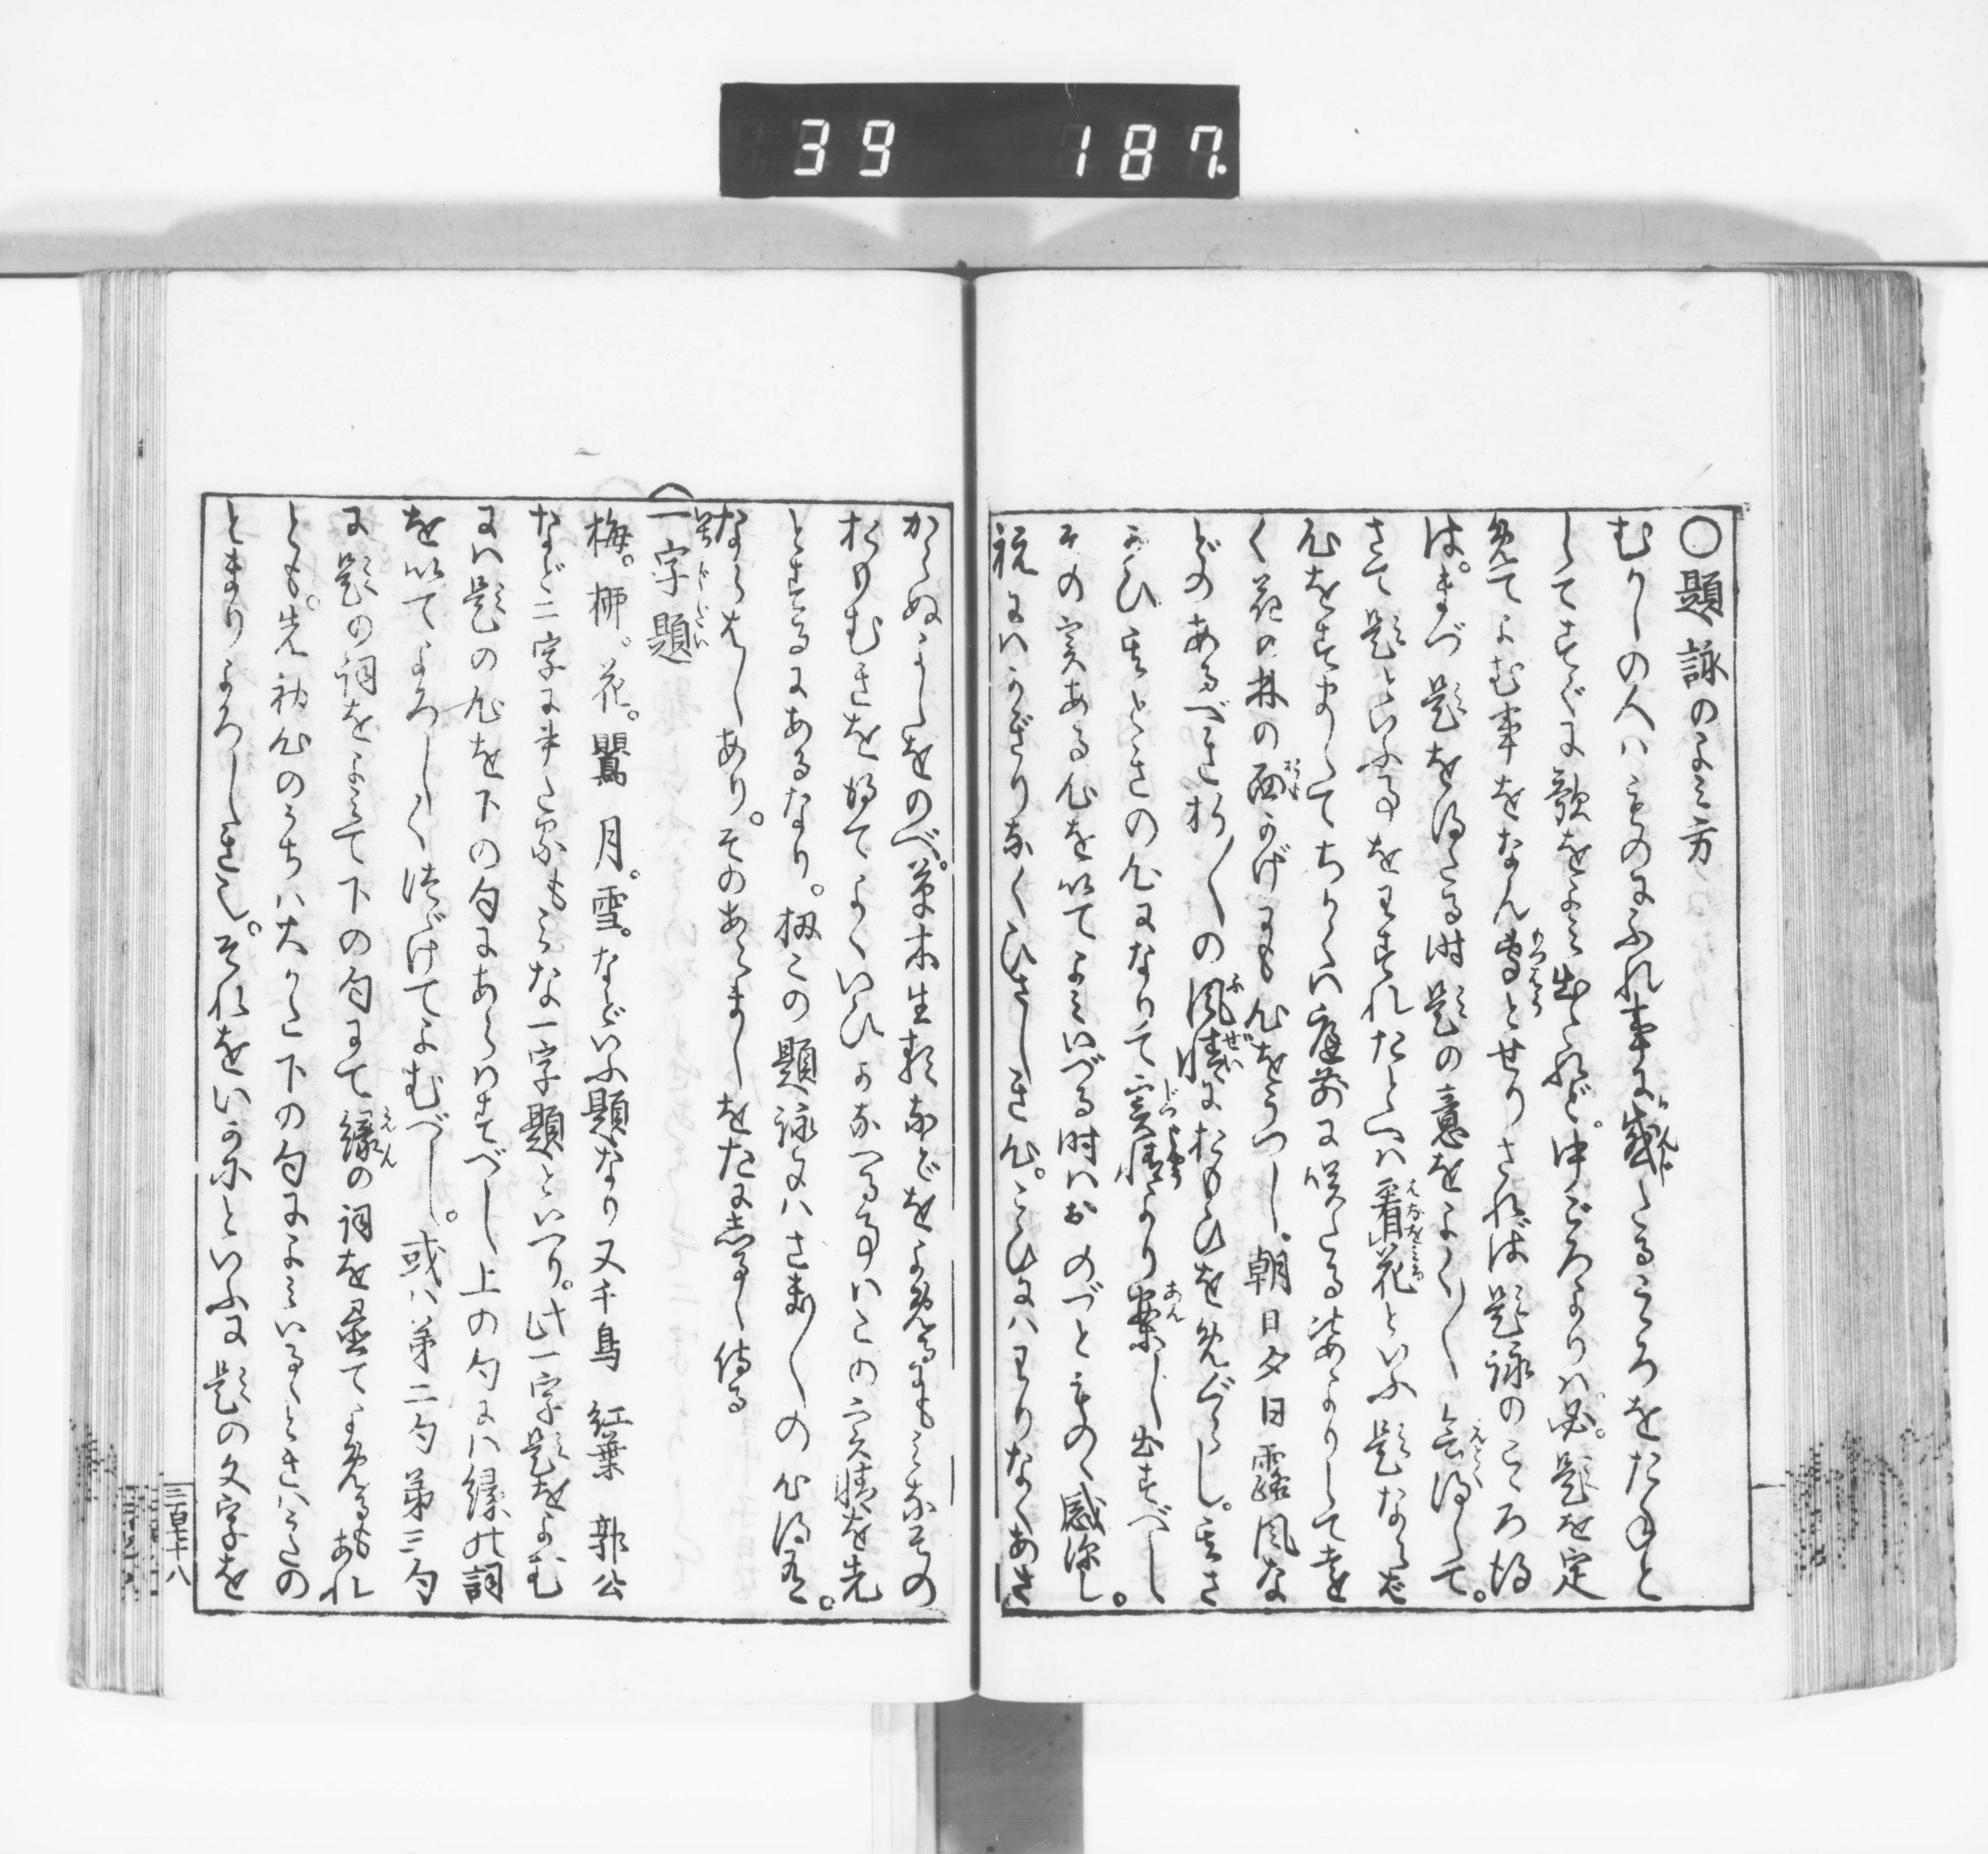 39 187
〇題詠のよミ方
むかしの人ハものにふれ事に感じたるこゝろをたねと
してすぐに歌をよミ出たれど。中ごろよりハ。必題を定
めてよむ事をなん専とせりされば題詠のこゝろ得
は。まづ題を得たる時題の意をよく〳〵会得して。
さて題といふ事をわすれたとへハ看花といふ題ならば
心をすまして ちかく庭前に咲たる
く花の林の面かげにも心をうつし。朝日夕日露風な
どのあるべきおり〳〵の風情におもひをめぐらし。其さ
かひ其ときの心になりて実情より案じ出すべし
その実ある心を以てよミいづる時ハおのづともの感深し。
祝にハかぎりなくひさしき心。こひにハわりなくあさ
からぬよしをのべ。草木生類などをよめるにもミなその
おもむきを得てよくいひかなへる事ハこの実情を先
とするにあるなり。扨この題詠にハさま〴〵の心得有。
ならハしあり。そのあらましをたにしるし侍る
一字題
梅。柳。花。鶯 月。雪。などいふ題なり又千鳥 紅葉 郭公
など二字にかきたるもミな一字題といへり。此一字題をよむ
にハ題の心を下の句にあらハすべし上の句にハ縁の詞
を以てよろしくつゞけてよむべし。或ハ第二句第三句
に題の詞をよミて下の句にて縁の詞を重てよめるもあれ
とも。先初心のうちハ大かた下の句によミいるゝときハうたの
とまりよろしきもの也。それをいかにといふに題の文字を
三百七十八